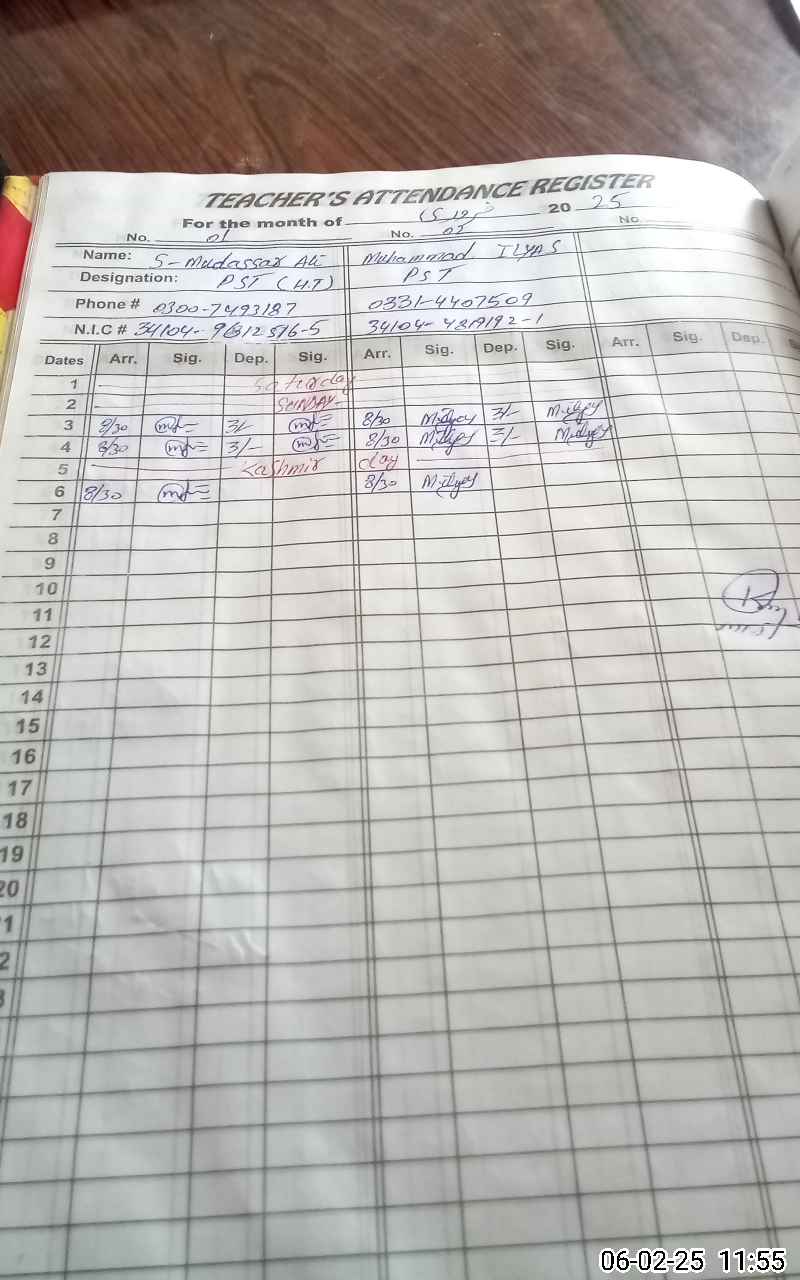 TEACHER'S ATTENDANCE REGISTER
For the month of 20 25
No. 01 No. 02 No.
Name: S-Mudassar Ali Muhammad ILYAS
Designation: PST (H.T) PST
Phone # 0300-7493187 0331-4407509
N.I.C # 34104-
Dates Arr. Sig. Dep. Sig. Arr. Sig. Dep. Sig. Arr. Sig. Dep.
1 Saturday
2 SUNDAY
3 8/30 3/- 8/30 M.ilyas 3/- M.ilyas
4 8/30 3/- 8/30 M.ilyas 3/- M.ilyas
5 Kashmir day
6 8/30 8/30 M.ilyas
7
8
9
10
11
12
13
14
15
16
17
18
19
20
1
2
3
06-02-25 11:55